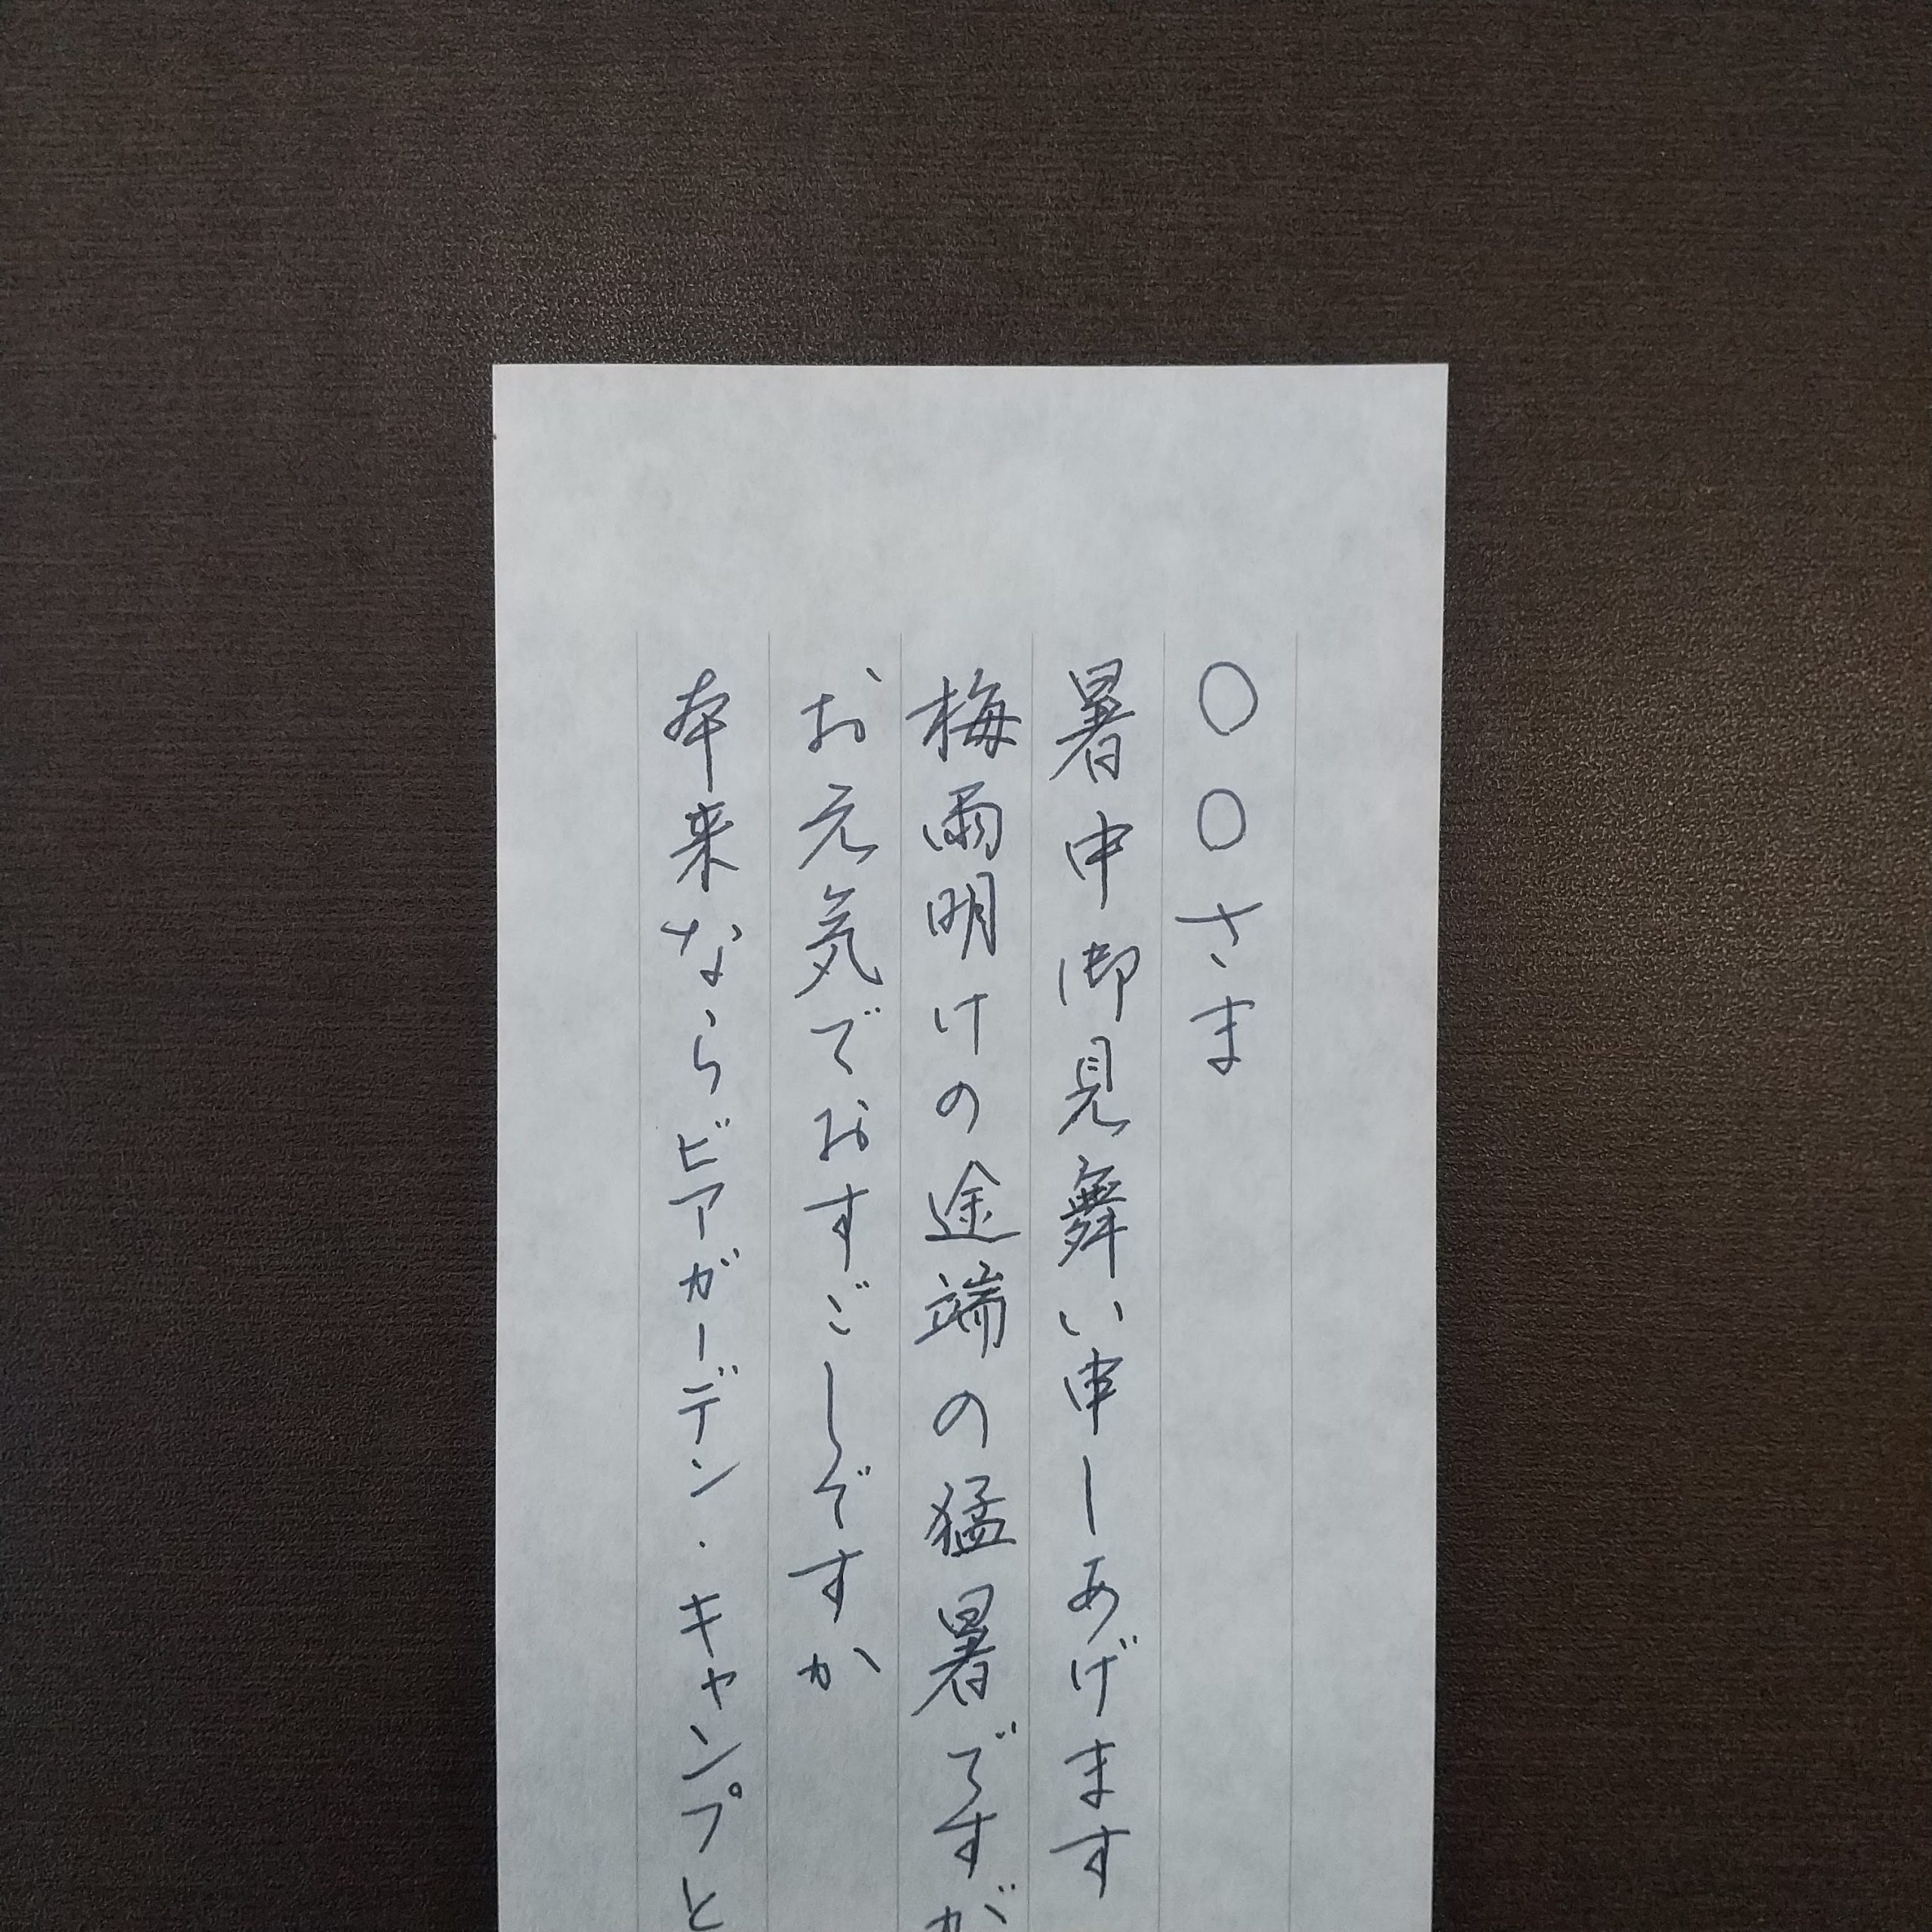 〇〇さま
暑中御見舞い申しあげます
梅雨明けの途端の猛暑ですが
お元気でおすごしですか
本来ならビアガーデン・キャンプと